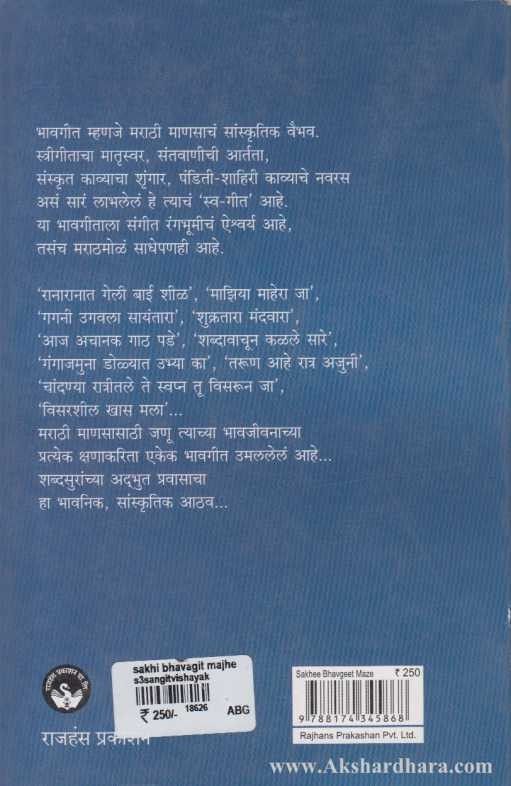 भावगीत म्हणजे मराठी माणसाचं सांस्कृतिक वैभव.
स्त्रीगीताचा मातृस्वर, संतवाणीची आर्तता,
संस्कृत काव्याचा शृंगार, पंडिती-शाहिरी काव्याचे नवरस
असं सारं लाभलेलं हे त्याचं ‘स्व-गीत’ आहे.
या भावगीताला संगीत रंगभूमीचं ऐश्वर्य आहे,
तसंच मराठमोळं साधेपणही आहे.
‘रानारानात गेली बाई शीळ’, ‘माझिया माहेरा जा’,
‘गगनी उगवला सायंतारा’, ‘शुक्रतारा मंदवारा’,
‘आज अचानक गाठ पडे’, ‘शब्दावाचून कळले सारे’,
‘गंगाजमुना डोळ्यात उभ्या का’, ‘तरूण आहे रात्र अजुनी’,
‘चांदण्या रात्रीतले ते स्वप्न तू विसरून जा’,
‘विसरशील खास मला’...
मराठी माणसासाठी जणू त्याच्या भावजीवनाच्या
प्रत्येक क्षणाकरिता एकेक भावगीत उमललेलं आहे...
शब्दसुरांच्या अद्‌भुत प्रवासाचा
हा भावनिक, सांस्कृतिक आठव...
राजहंस प्रकाशन प्रा. लि.
राजहंस प्रकाशन
sakhi bhavagit majhe
s3sangitvishayak
₹ 250/- 18626 ABG
Sakhee Bhavgeet Maze ₹ 250
9 788174 345868
Rajhans Prakashan Pvt. Ltd.
www.Akshardhara.com